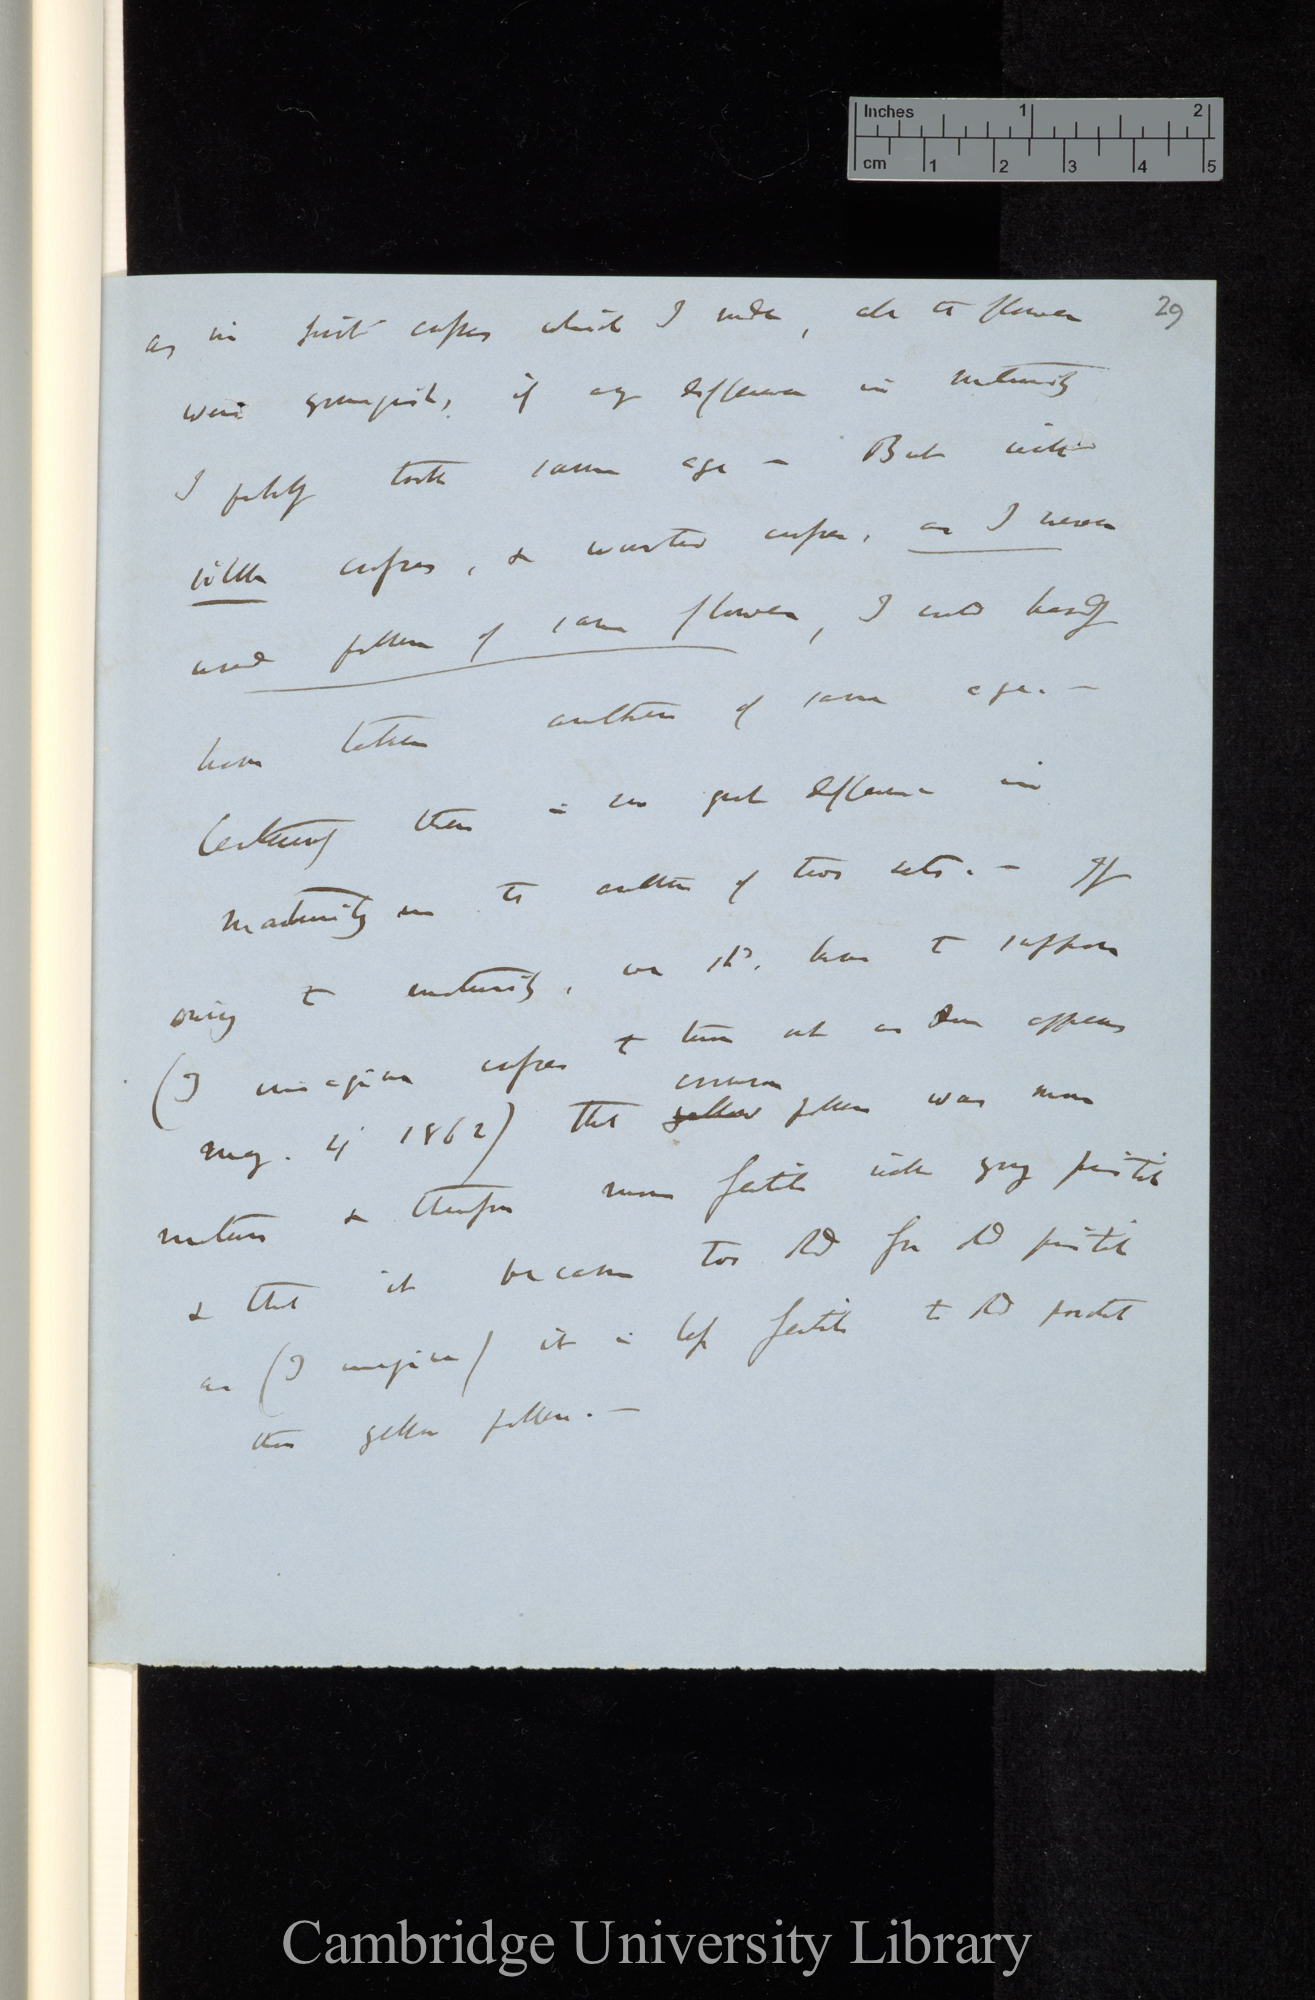 Inches 1 2
cm 1 2 3 4 5
29
as in first crosses which I made, all the flowers
were youngish, if any difference in maturity
I probably took same age — But with
later crosses, & crosses, as I never
used pollen of same flower, I could hardly
have taken anthers of same age. —
Certainly there is no great difference in
maturity in the anthers of two sets. — If
owing to maturity, we shd. have to suppose
(I imagine crosses to turn out as seem appears
May. 4 1862) that yellow crimson pollen was more
mature & therefore more fertile with young pistils
& that it became too old for old pistils
as (I imagine) it is less fertile to old pistils
than yellow pollen. —
Cambridge University Library